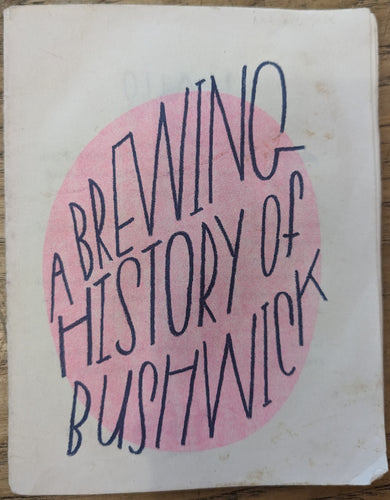 A BREWING
HISTORY OF
BUSHWICK